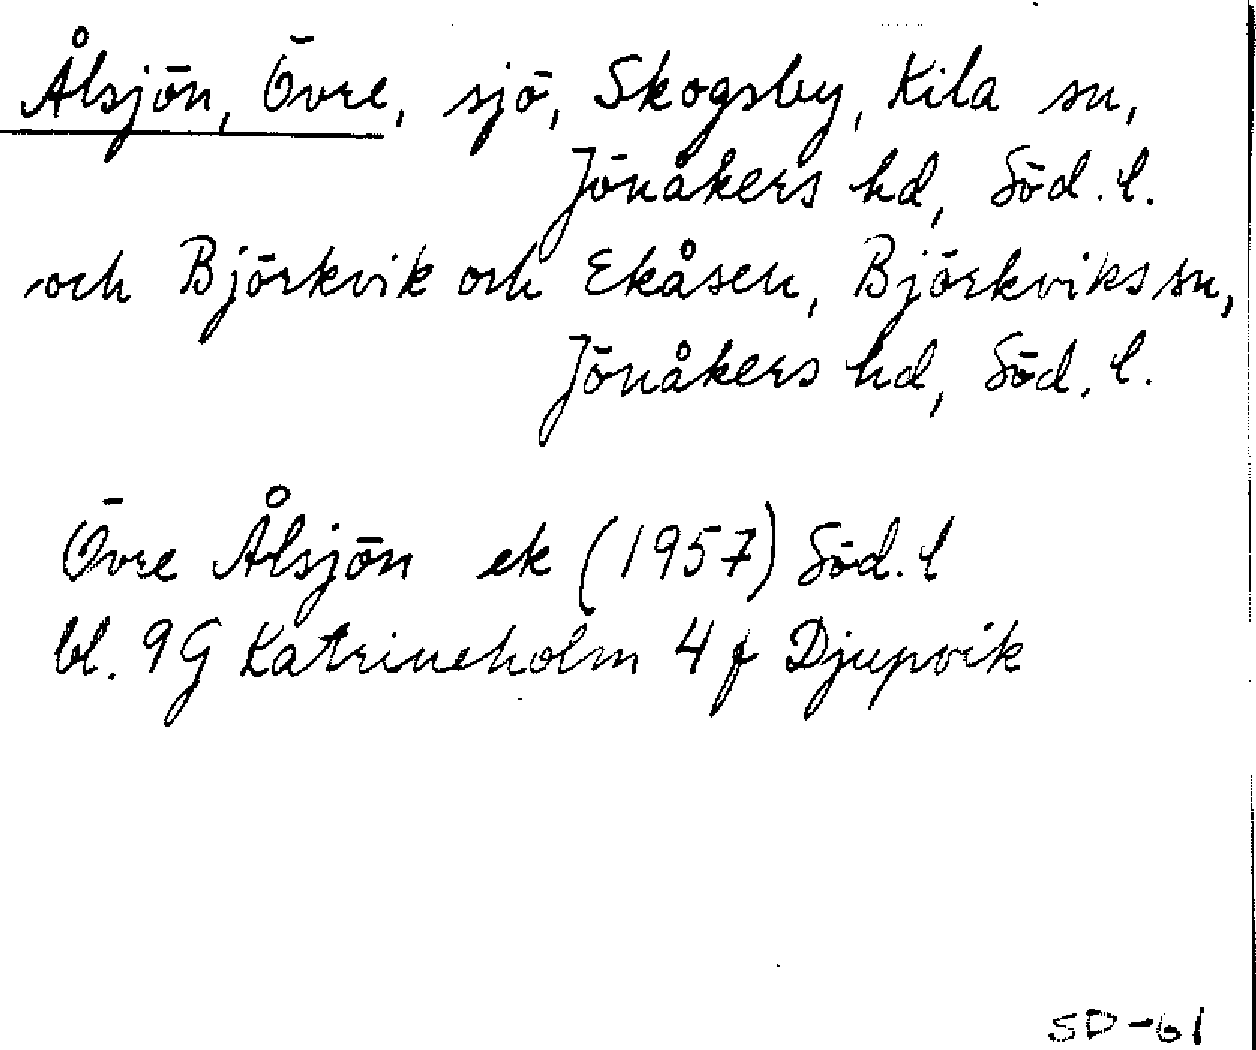 Ålsjön, Övre, sjö, Skogsby, Kila sn,
Jönåkers hd, Söd. l.
och Björkvik och Ekåsen, Björkviks sn,
Jönåkers hd, Söd. l.
Övre Ålsjön ek (1957) Söd. l
bl. 9G Katrineholm 4f Djupvik
SD-61